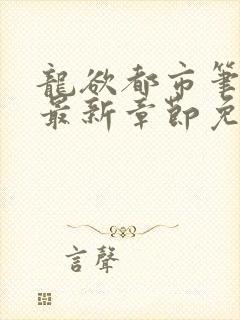 龍欲都市筆
最新章節免
言聲